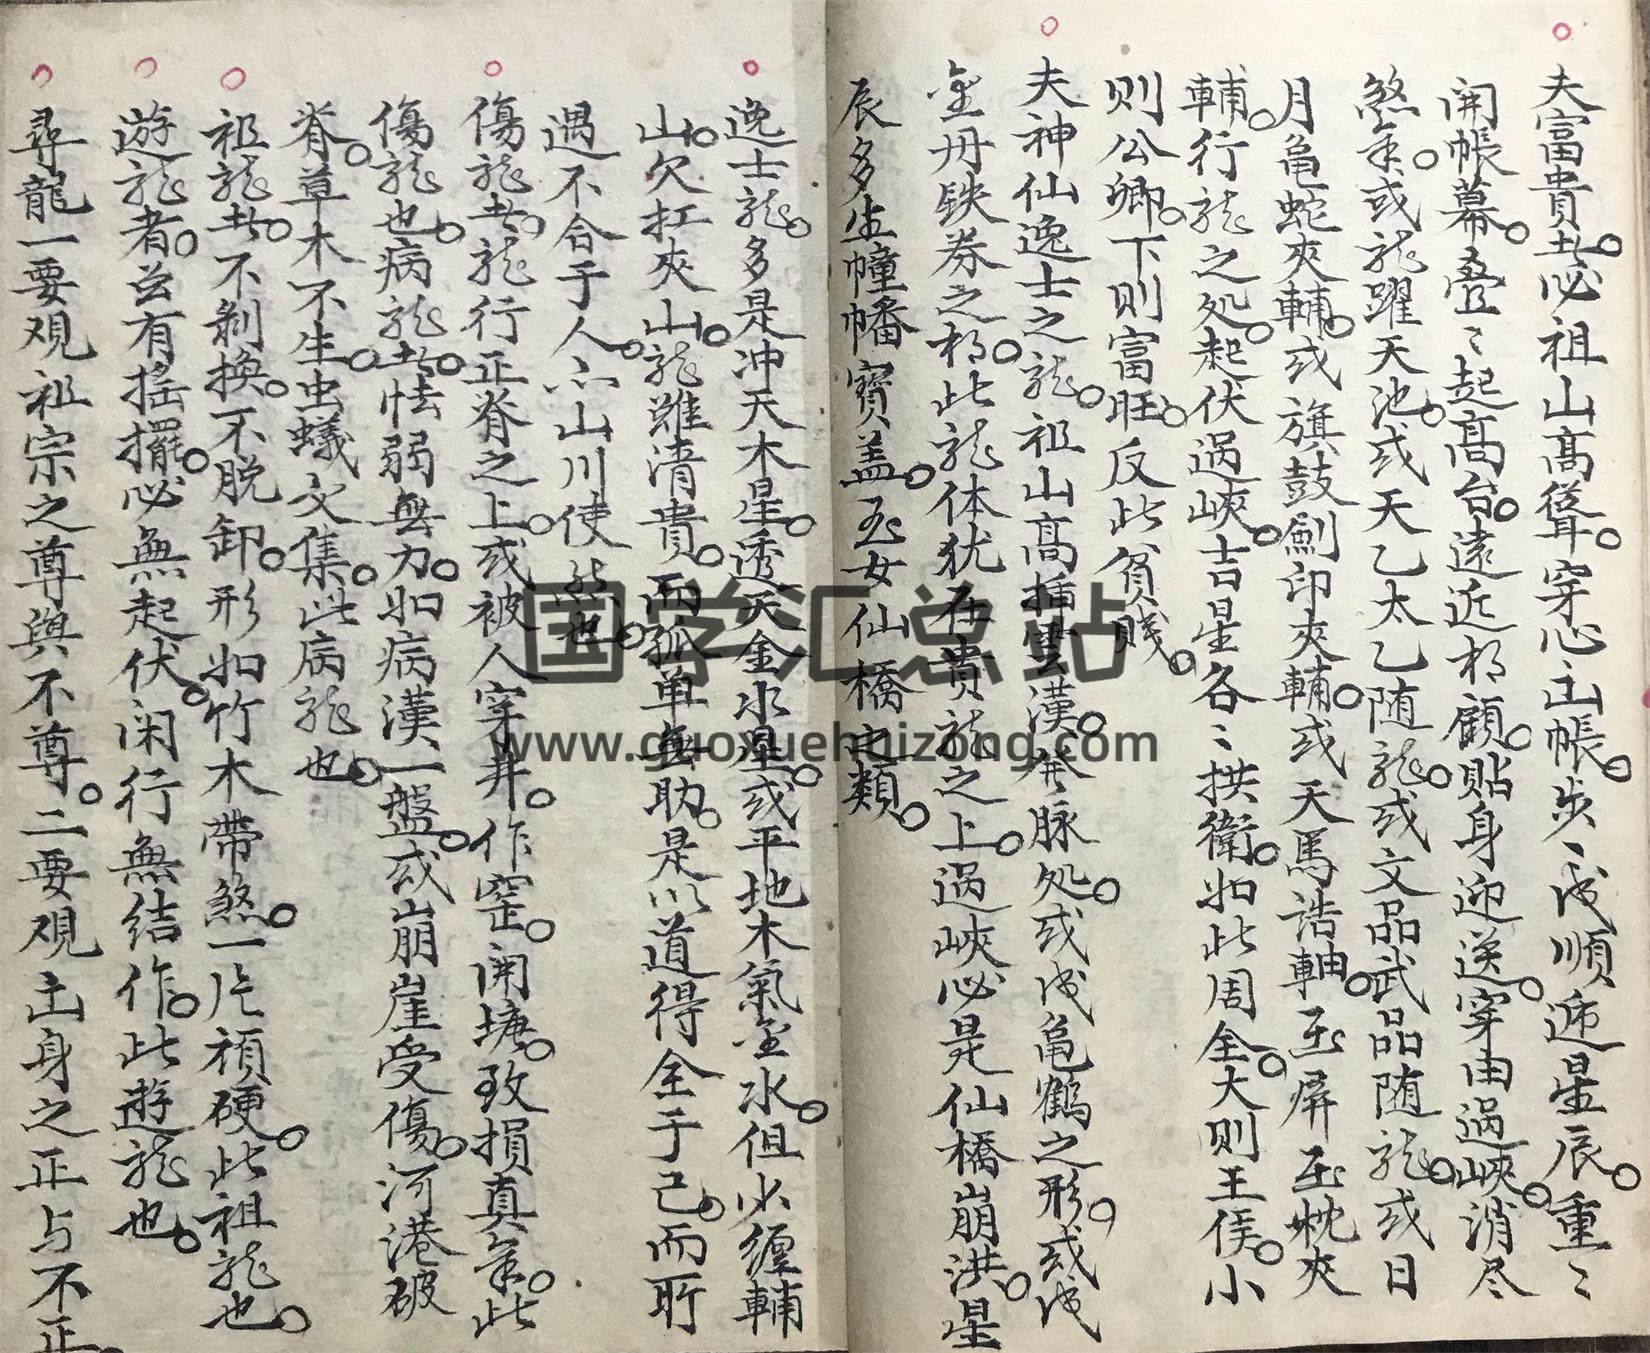 夫富貴龙必祖山髙聳穿心出帳步〻成順逓星辰重〻
開帳幕叠〻起髙台遠近相顧貼身迎送穿由过峽消尽
煞氣或龙躍天池或天乙太乙随龙或文品武品随龙或日
月亀蛇夾輔或旗鼓劍印夾輔或天馬誥軸玉屏玉枕夾
輔行龙之处起伏过峽吉星各〻拱衛如此周全大则王侯小
则公卿下则富旺反此貧賤
夫神仙逸士之龙祖山髙插雲漢發脉处或成亀鶴之形或成
金丹鉄券之相此龙体犹在貴龙之上过峽必是仙橋崩洪星
辰多生幢幡寶盖玉女仙橋之類
逸士龙多是冲天木星透天金水星或平地木氣金水但少纏輔
山欠扛夾山龙雖清貴而孤单無助是以道得全于己而所
遇不合于人亦山川使然也
傷龙者龙行正脊之上或被人穿井作窑開塘致損真氣此
傷龙也病龙者怯弱無力如病漢一盤或崩崖受傷河港破
脊草木不生虫蟻交集此病龙也
祖龙者不剝換不脱卸形如竹木帶煞一片頑硬此祖龙也
遊龙者玆有摇擺必無起伏闲行無结作此遊龙也
尋龍一要观祖宗之尊與不尊二要观出身之正与不正
国学汇总站
www.guoxuehuizong.com